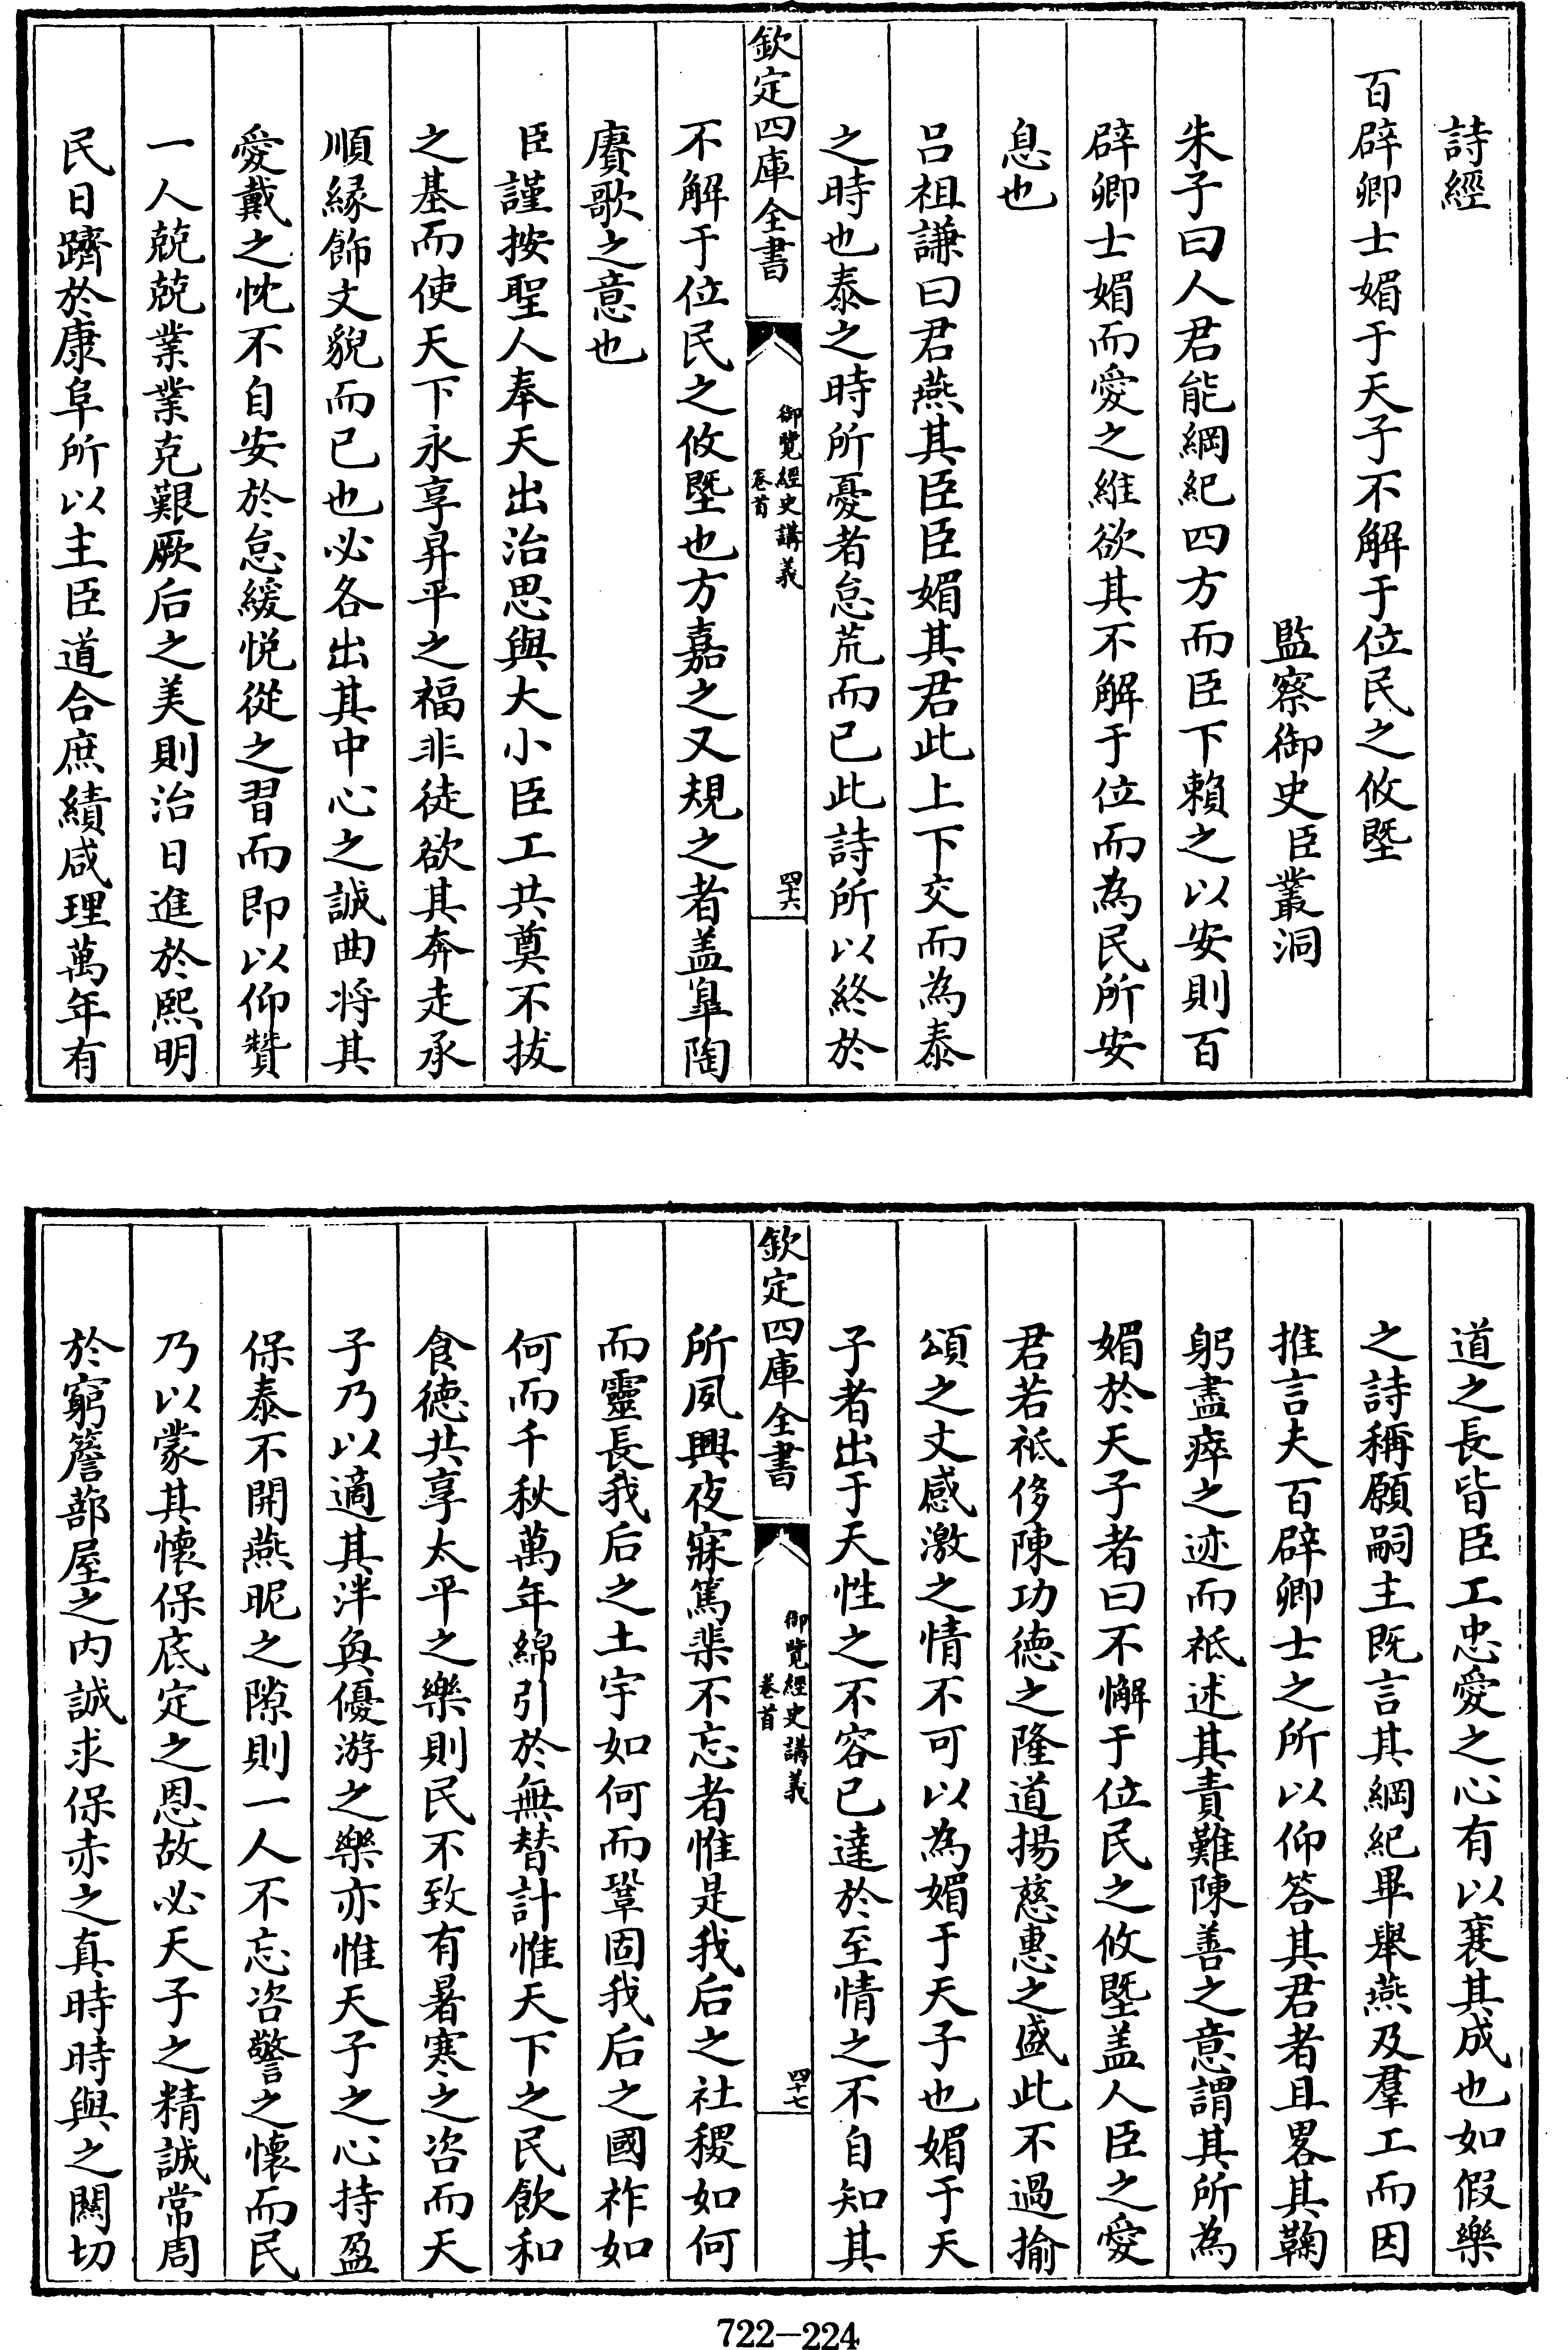 詩經
百辟卿士媚于天子不解于位民之攸塈
監察御史臣叢洞
朱子曰人君能綱紀四方而臣下賴之以安則百
辟卿士媚而愛之維欲其不解于位而為民所安
息也
呂祖謙曰君燕其臣臣媚其君此上下交而為泰
之時也泰之時所憂者怠荒而已此詩所以終於
欽定四庫全書
御覽經史講義
卷首
四十六
不解于位民之攸塈也方嘉之又規之者盖臯陶
賡歌之意也
臣謹按聖人奉天出治思與大小臣工共奠不拔
之基而使天下永享昇平之福非徒欲其奔走承
順緣飾文貌而已也必各出其中心之誠曲将其
愛戴之忱不自安於怠緩悦從之習而即以仰贊
一人兢兢業業克艱厥后之美則治日進於熙明
民日躋於康阜所以主臣道合庶績咸理萬年有
道之長皆臣工忠愛之心有以襄其成也如假樂
之詩稱願嗣主既言其綱紀畢舉燕及羣工而因
推言夫百辟卿士之所以仰答其君者且畧其鞠
躬盡瘁之迹而祗述其責難陳善之意謂其所為
媚於天子者曰不懈于位民之攸塈盖人臣之愛
君若祗侈陳功德之隆道揚慈惠之盛此不過揄
頌之文感激之情不可以為媚于天子也媚于天
子者出于天性之不容已達於至情之不自知其
欽定四庫全書
御覽經史講義
卷首
四十七
所夙興夜寐篤棐不忘者惟是我后之社稷如何
而靈長我后之土宇如何而鞏固我后之國祚如
何而千秋萬年綿引於無替計惟天下之民飲和
食德共享太平之樂則民不致有暑寒之咨而天
子乃以適其泮奐優游之樂亦惟天子之心持盈
保泰不開燕昵之隙則一人不忘咨警之懷而民
乃以蒙其懷保底定之恩故必天子之精誠常周
於窮簷蔀屋之內誠求保赤之真時時與之關切
722-224